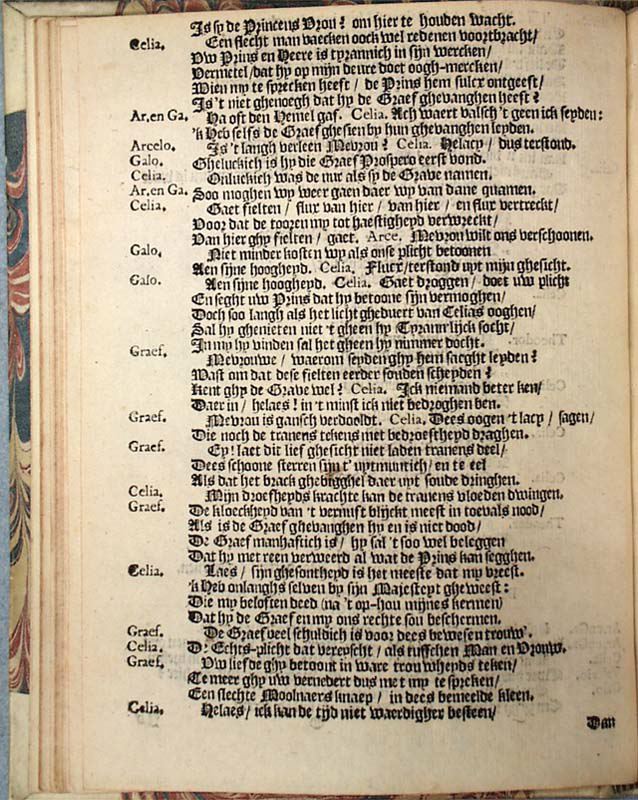 Is sy de Princens Vrou? om hier te houden wacht.
Celia. Een slecht man vaecken oock wel redenen voortbracht/
Vw Prins en Heere is tyrannich in sijn wercken/
Vermetel/ dat hy op mijn deure doet oogh-mercken/
Wien my te sprecken heeft/ de Prins hem sulcx ontgeeft/
Is't niet ghenoegh dat hy de Graef ghevanghen heeft?
Ar. en Ga. Ha oft den Hemel gaf. Celia. Ach waert valsch 't geen ick seyden:
'k Heb selfs de Graef ghesien by hun ghevanghen leyden.
Arcelo. Is't langh verleen Mevrou? Celia. Helacy/ dus terstond.
Galo. Gheluckich is hy die Graef Prospero eerst vond.
Celia. Onluckich was de uur als sy de Grave namen.
Ar. en Ga. Soo moghen wy weer gaen daer wy van dane quamen.
Celia. Gaet fielten/ flux van hier/ van hier/ en flux vertreckt/
Voor dat de tooren my tot haestigheyd verwreckt/
Van hier ghy fielten/ gaet. Arce. Mevrou wilt ons verschoonen.
Galo. Niet minder kosten wy als onse plicht betoonen
Aen sijne hoogheyd. Celia. Flucx/ terstond uyt mijn ghesicht.
Galo. Aen sijne hoogheyd. Celia. Gaet droggen/ doet uw plicht
En seght uw Prins dat hy betoone sijn vermoghen/
Doch soo langh als het licht gheduert van Celias ooghen/
Sal hy ghenieten niet 't gheen hy Tyrannlijck socht/
In my hy vinden sal het gheen hy nimmer docht.
Graef. Mevrouwe/ waerom seyden ghy hem saeght leyden?
Wast om dat dese fielten eerder souden scheyden?
Kent ghy de Grave wel? Celia. Ick niemand beter ken/
Daer in/ helaes! in 't minst ick niet bedroghen ben.
Graef. Mevrou is gansch verdooldt. Celia. Dees oogen 't lacy/ sagen/
Die noch de tranens tekens met bedroeftheyd draghen.
Graef. Ey! laet dit lief ghesicht niet laden tranens deel/
Dees schoone sterren sijn t' uytmuntich/ en te eel
Als dat het brack ghebigghel daer uyt soude dringhen.
Celia. Mijn droefheyds krachte kan de tranens vloeden dwingen.
Graef. De kloeckheyd van 't vernuft blijckt meest in toevals nood/
Als is de Graef ghevanghen hy en is niet dood/
De Graef manhaftich is/ hy sal 't soo wel beleggen
Dat hy met reen verweerd al wat de Prins kan segghen.
Celia. Laes/ sijn ghesontheyd is het meeste dat my vreest.
'k Heb onlanghs selven by sijn Majesteyt gheweest:
Die my beloften deed (na 't op-hou mijnes kermen)
Dat hy de Graef en my ons rechte sou beschermen.
Graef. De Graef veel schuldich is voor dees bewesen trouw'.
Celia. D' Echts-plicht dat vereyscht/ als tusschen Man en Vrouw.
Graef. Vw liefde ghy betoont in ware trouwheyds teken/
Te meer ghy uw vernedert dus met my te spreken/
Een slechte Moolnaers knaep/ in dees bemeelde kleen.
Celia. Helaes/ ick kan de tijd niet waerdigher besteen/
Dan